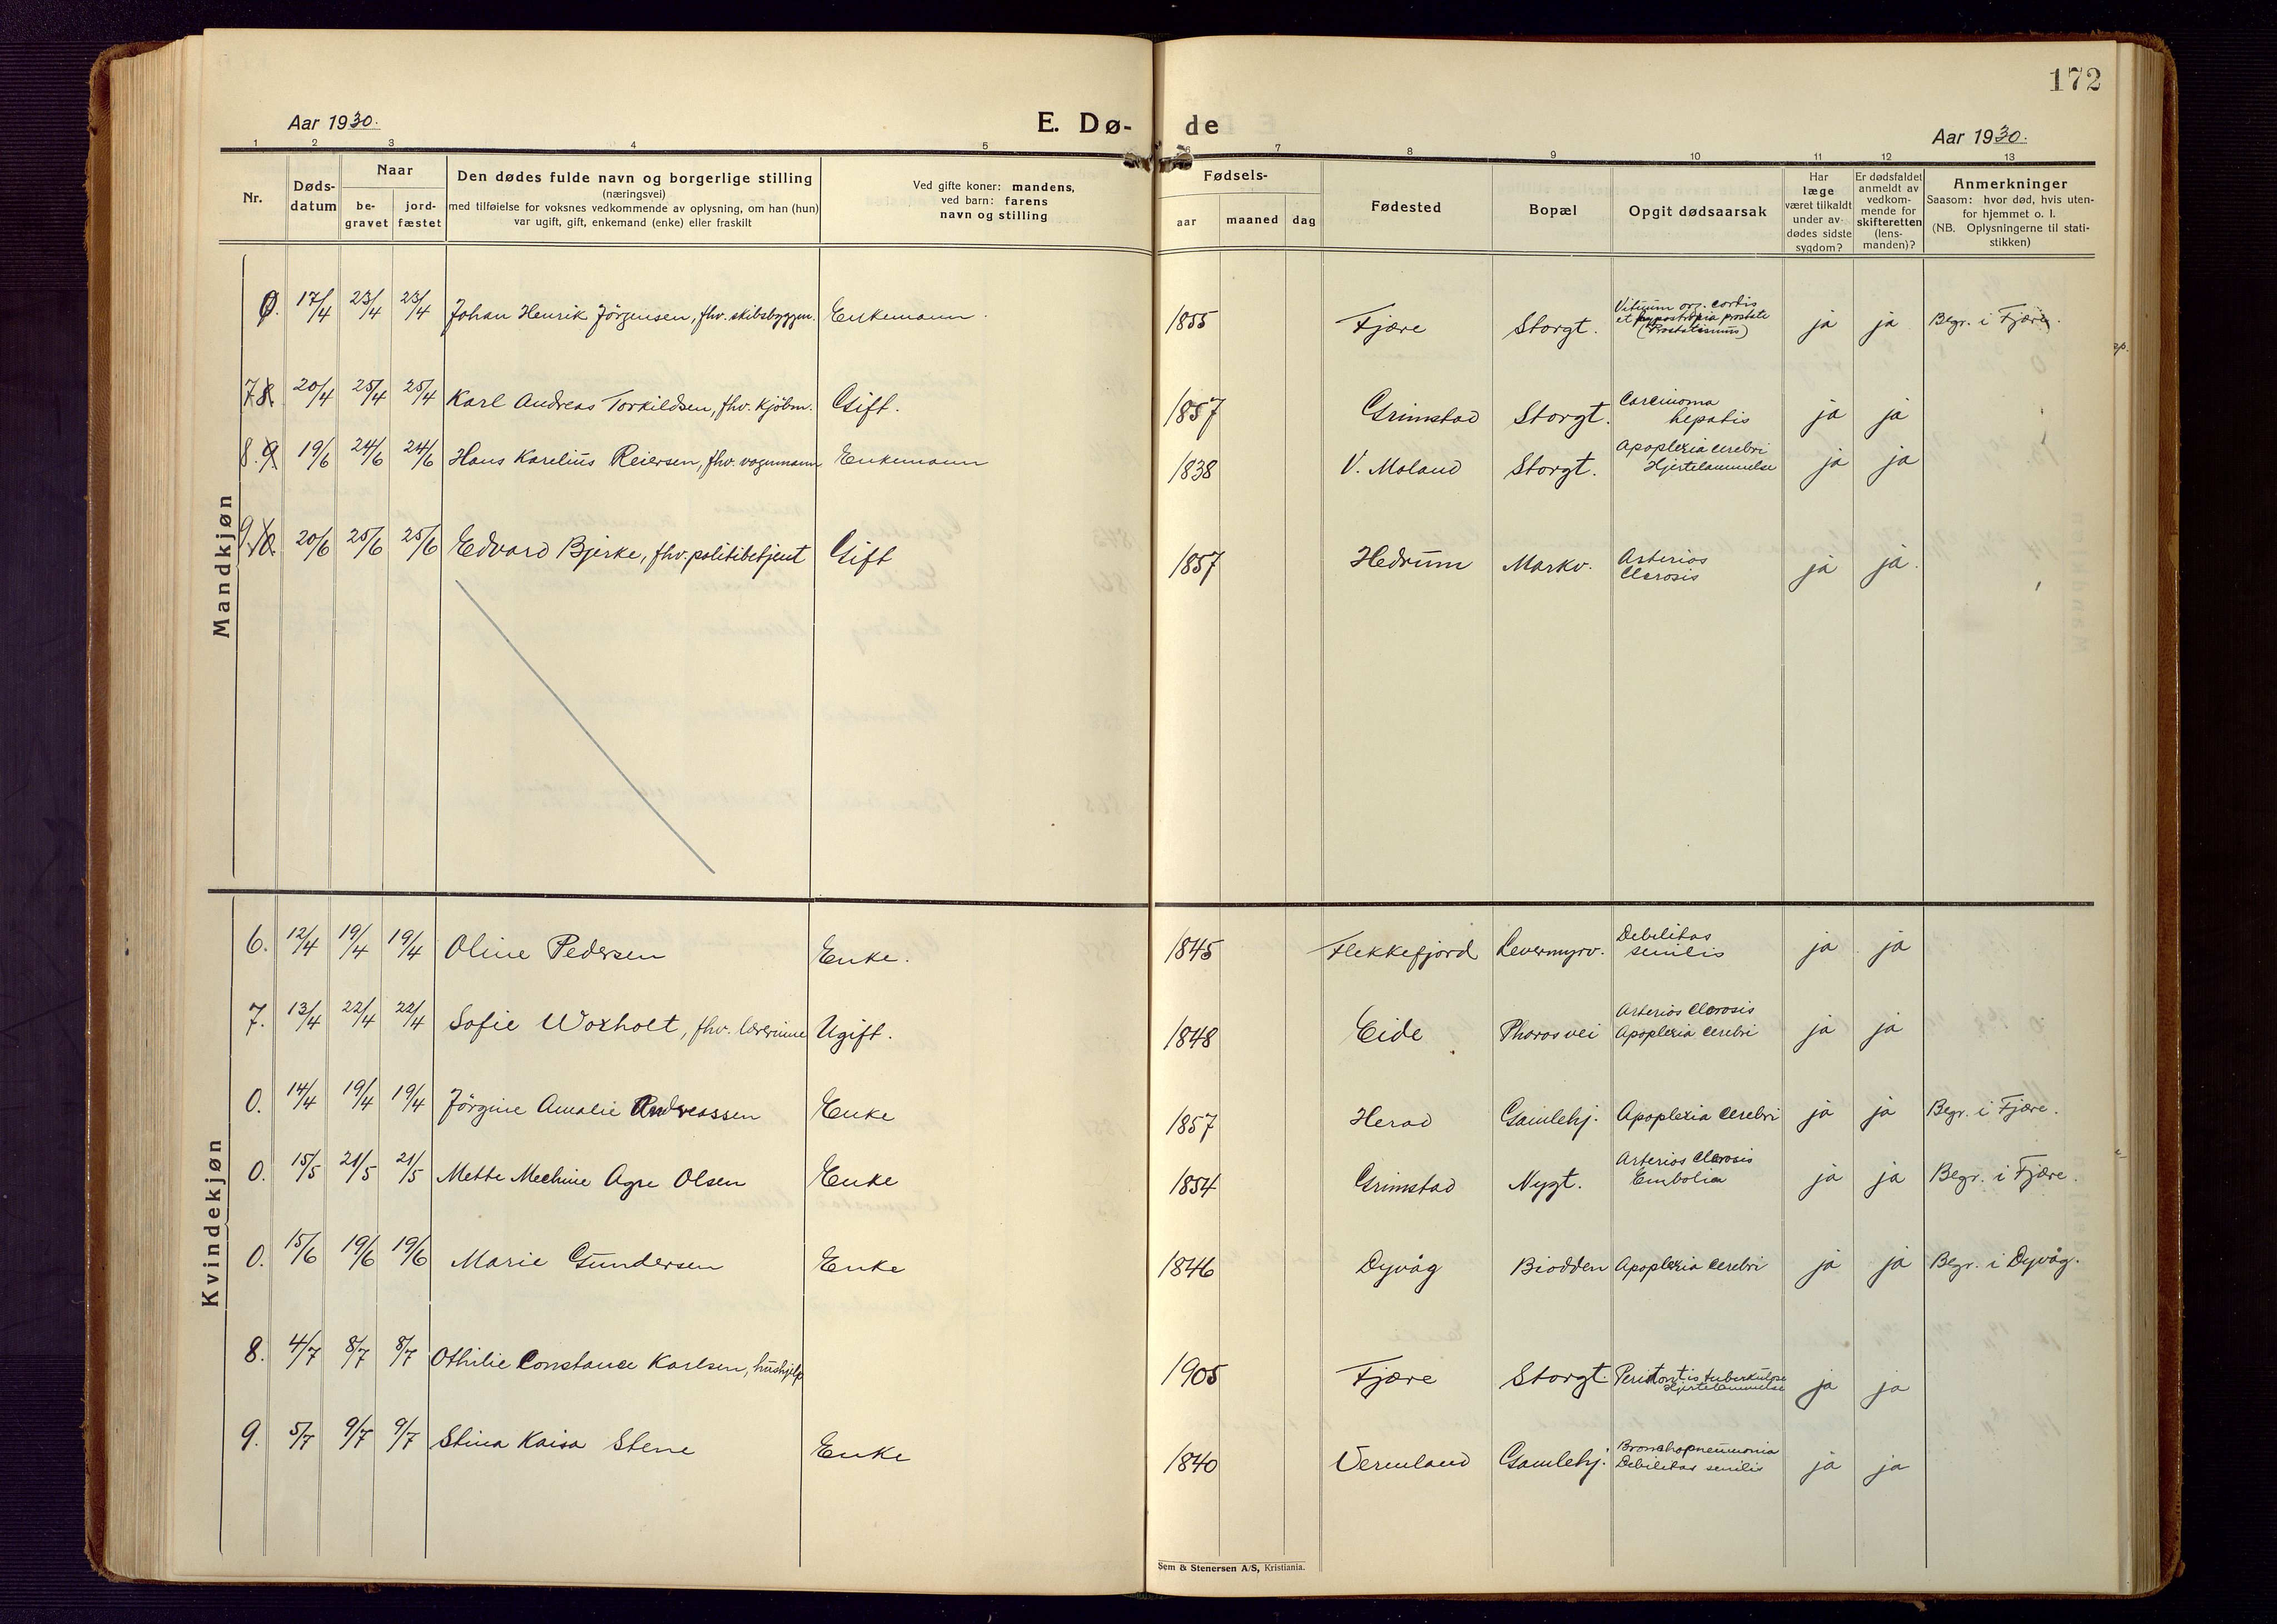 172
Aar 1930.
E. Dø-
de
Aar 1930.
1 2 3 4 5 6 7 8 9 10 11 12 13
Nr.
Døds-
datum
Naar
be-
gravet
jord-
fæstet
Den dødes fulde navn og borgerlige stilling
(næringsvei)
med tilføielse for voksnes vedkommende av oplysning, om han (hun)
var ugift, gift, enkemand (enke) eller fraskilt
Ved gifte koner: mandens,
ved barn: farens
navn og stilling
Fødsels-
aar
maaned
dag
Fødested
Bopæl
Opgit dødsaarsak
Har
læge
været tilkaldt
under av-
dødes sidste
sygdom?
Er dødsfaldet
anmeldt av
vedkom-
mende for
skifteretten
(lens-
manden)?
Anmerkninger
Saasom: hvor død, hvis uten-
for hjemmet o. l.
(NB. Oplysningerne til stati-
stikken)
Mandkjøn
0. 17/4 23/4 23/4 Johan Henrik Jörgensen, fhv. skibsbyggm. Enkemann. 1855 Fjære Storgt. Vitium org. cordis
et prostate
(Prostatismus) ja ja Begr. i Fjære.
7. 8. 20/4 25/4 25/4 Karl Andreas Torkildsen, fhv. kjöbm. Gift. 1857 Grimstad Storgt. Carcinoma
hepatis ja ja
8. 9 19/6 24/6 24/6 Hans Karelius Reiersen, fhv. vognmann Enkemann 1838 V. Moland Storgt. Apoplexia cerebri
Hjertelammelse ja ja
9. 10. 20/6 25/6 25/6 Edvard Bjerke, fhv. politibetjent Gift 1857 Hedrum Markv. Arterios
Clerosis ja ja.
Kvindekjøn
6. 12/4 19/4 19/4 Oline Pedersen Enke. 1845 Flekkefjord Levermyrv. Debilitas
senilis ja ja
7. 13/4 22/4 22/4 Sofie Woxholt, fhv. lærerinne Ugift. 1848 Eide Pharosvei Arterios Clerosis
Apoplexia Cerebri ja ja
0. 14/4 19/4 19/4 Jörgine Amalie Andreassen Enke 1857 Herad Gamlehj. Apoplexia Cerebri ja ja Begr. i Fjære.
0. 15/5 21/5 21/5 Mette Mechine Agre Olsen Enke 1854 Grimstad Nygt. Arterios Clerosis
Embolia ja ja Begr. i Fjære.
0. 15/6 19/6 19/6 Marie Gundersen Enke 1846 Dyvåg Biodden Apoplexia Cerebri ja ja Begr. i Dyvåg.
8. 4/7 8/7 8/7 Othilie Constance Karlsen, hushjelp 1905 Fjære Storgt. Peritonitis tuberkulose
Hjertelammelse ja ja
9. 5/7 9/7 9/7 Stina Kaisa Stene Enke 1840 Vermland Gamlehj. Bronchopneumonia
Debilitas senilis ja ja
Sem & Stenersen A/S, Kristiania.